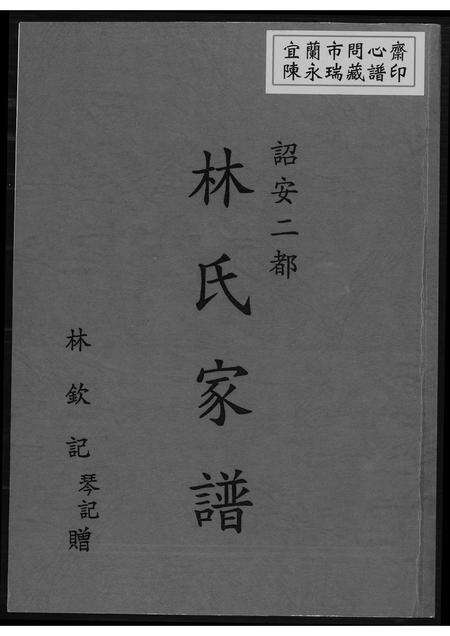 宜蘭市問心齋
陳永瑞藏譜印
詔安二都
林氏家譜
林欽記
琴記
贈